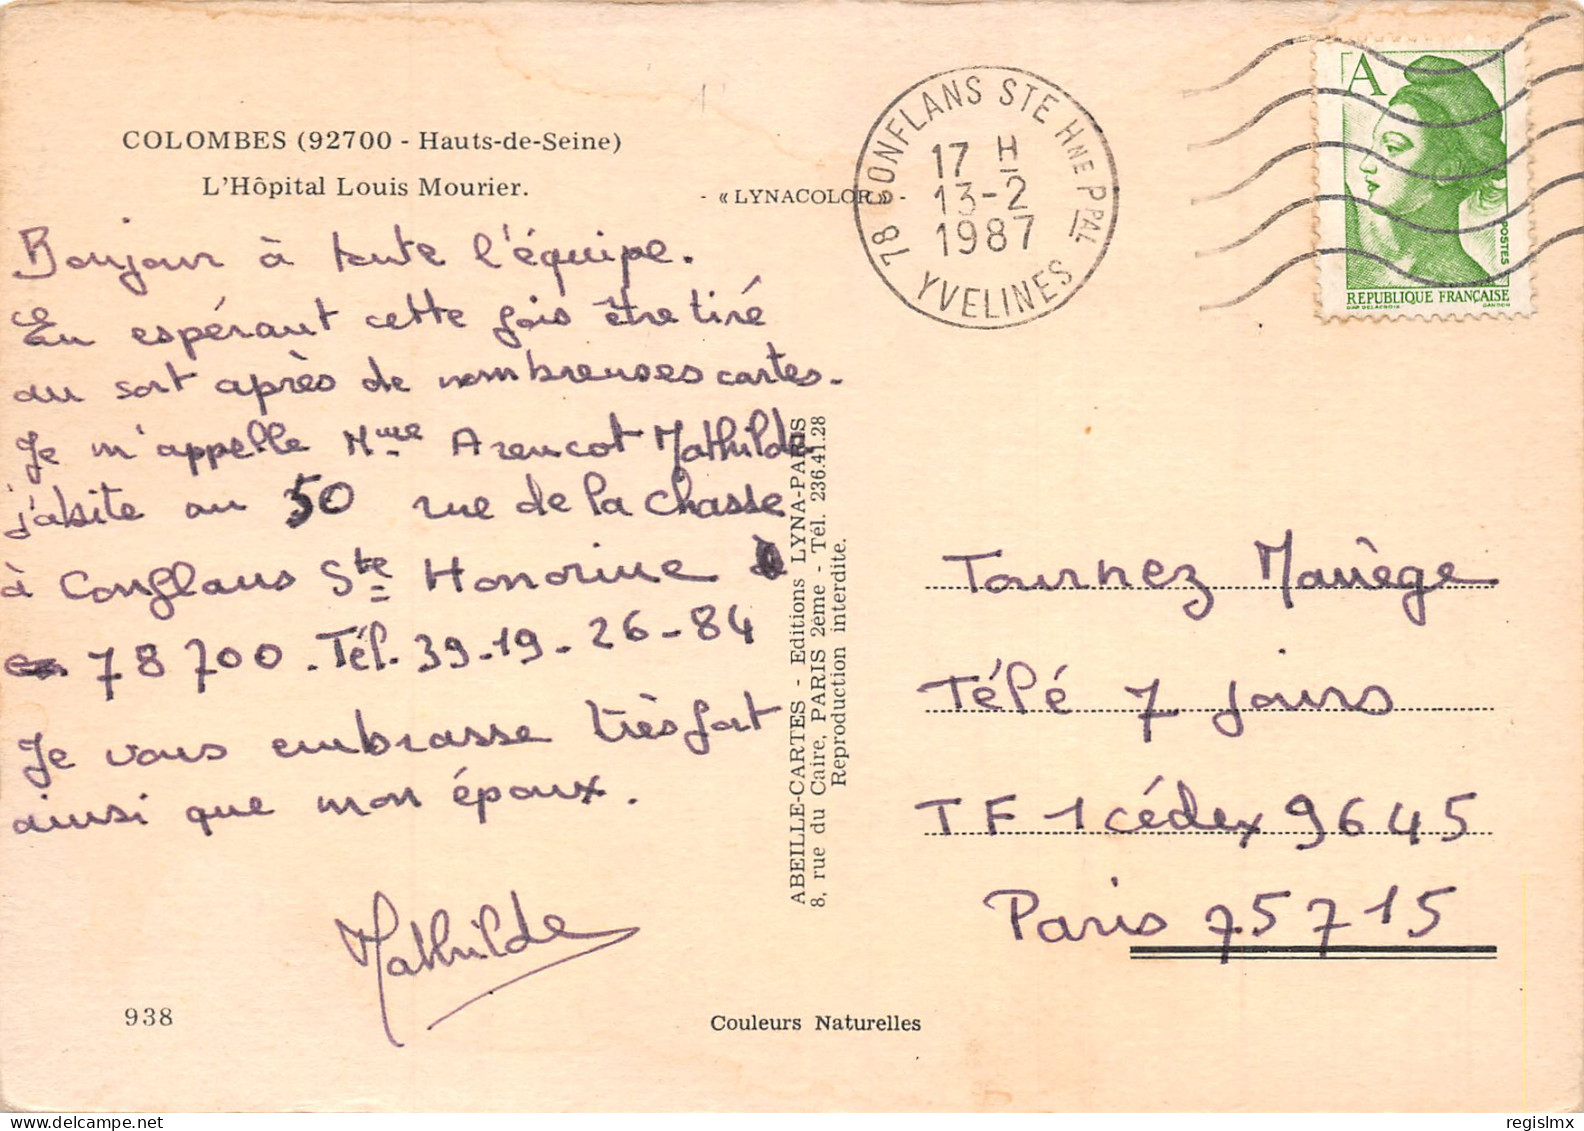 COLOMBES (92700 - Hauts-de-Seine)
L'Hôpital Louis Mourier.
- « LYNACOLOR » -
Bonjour à toute l'équipe.
En espérant cette fois être tiré
au sort après de nombreuses cartes.
Je m'appelle Mme Arencot Mathilde
j'abite au 50 rue de la chasse
à Conflans Ste Honorine
78700. Tél. 39-19-26-84
Je vous embrasse très fort
ainsi que mon époux.
Mathilde
938
Couleurs Naturelles
ABEILLE-CARTES - Editions LYNA-PARIS
8, rue du Caire, PARIS 2ème - Tél. 236.41.28
Reproduction interdite.
78 CONFLANS STE HNE PPAL
17 H
13-2
1987
YVELINES
A
POSTES
REPUBLIQUE FRANÇAISE
D'AP DELACROIX GANDON
Tournez Manège
Télé 7 jours
TF1 cédex 9645
Paris 75715
regislmx